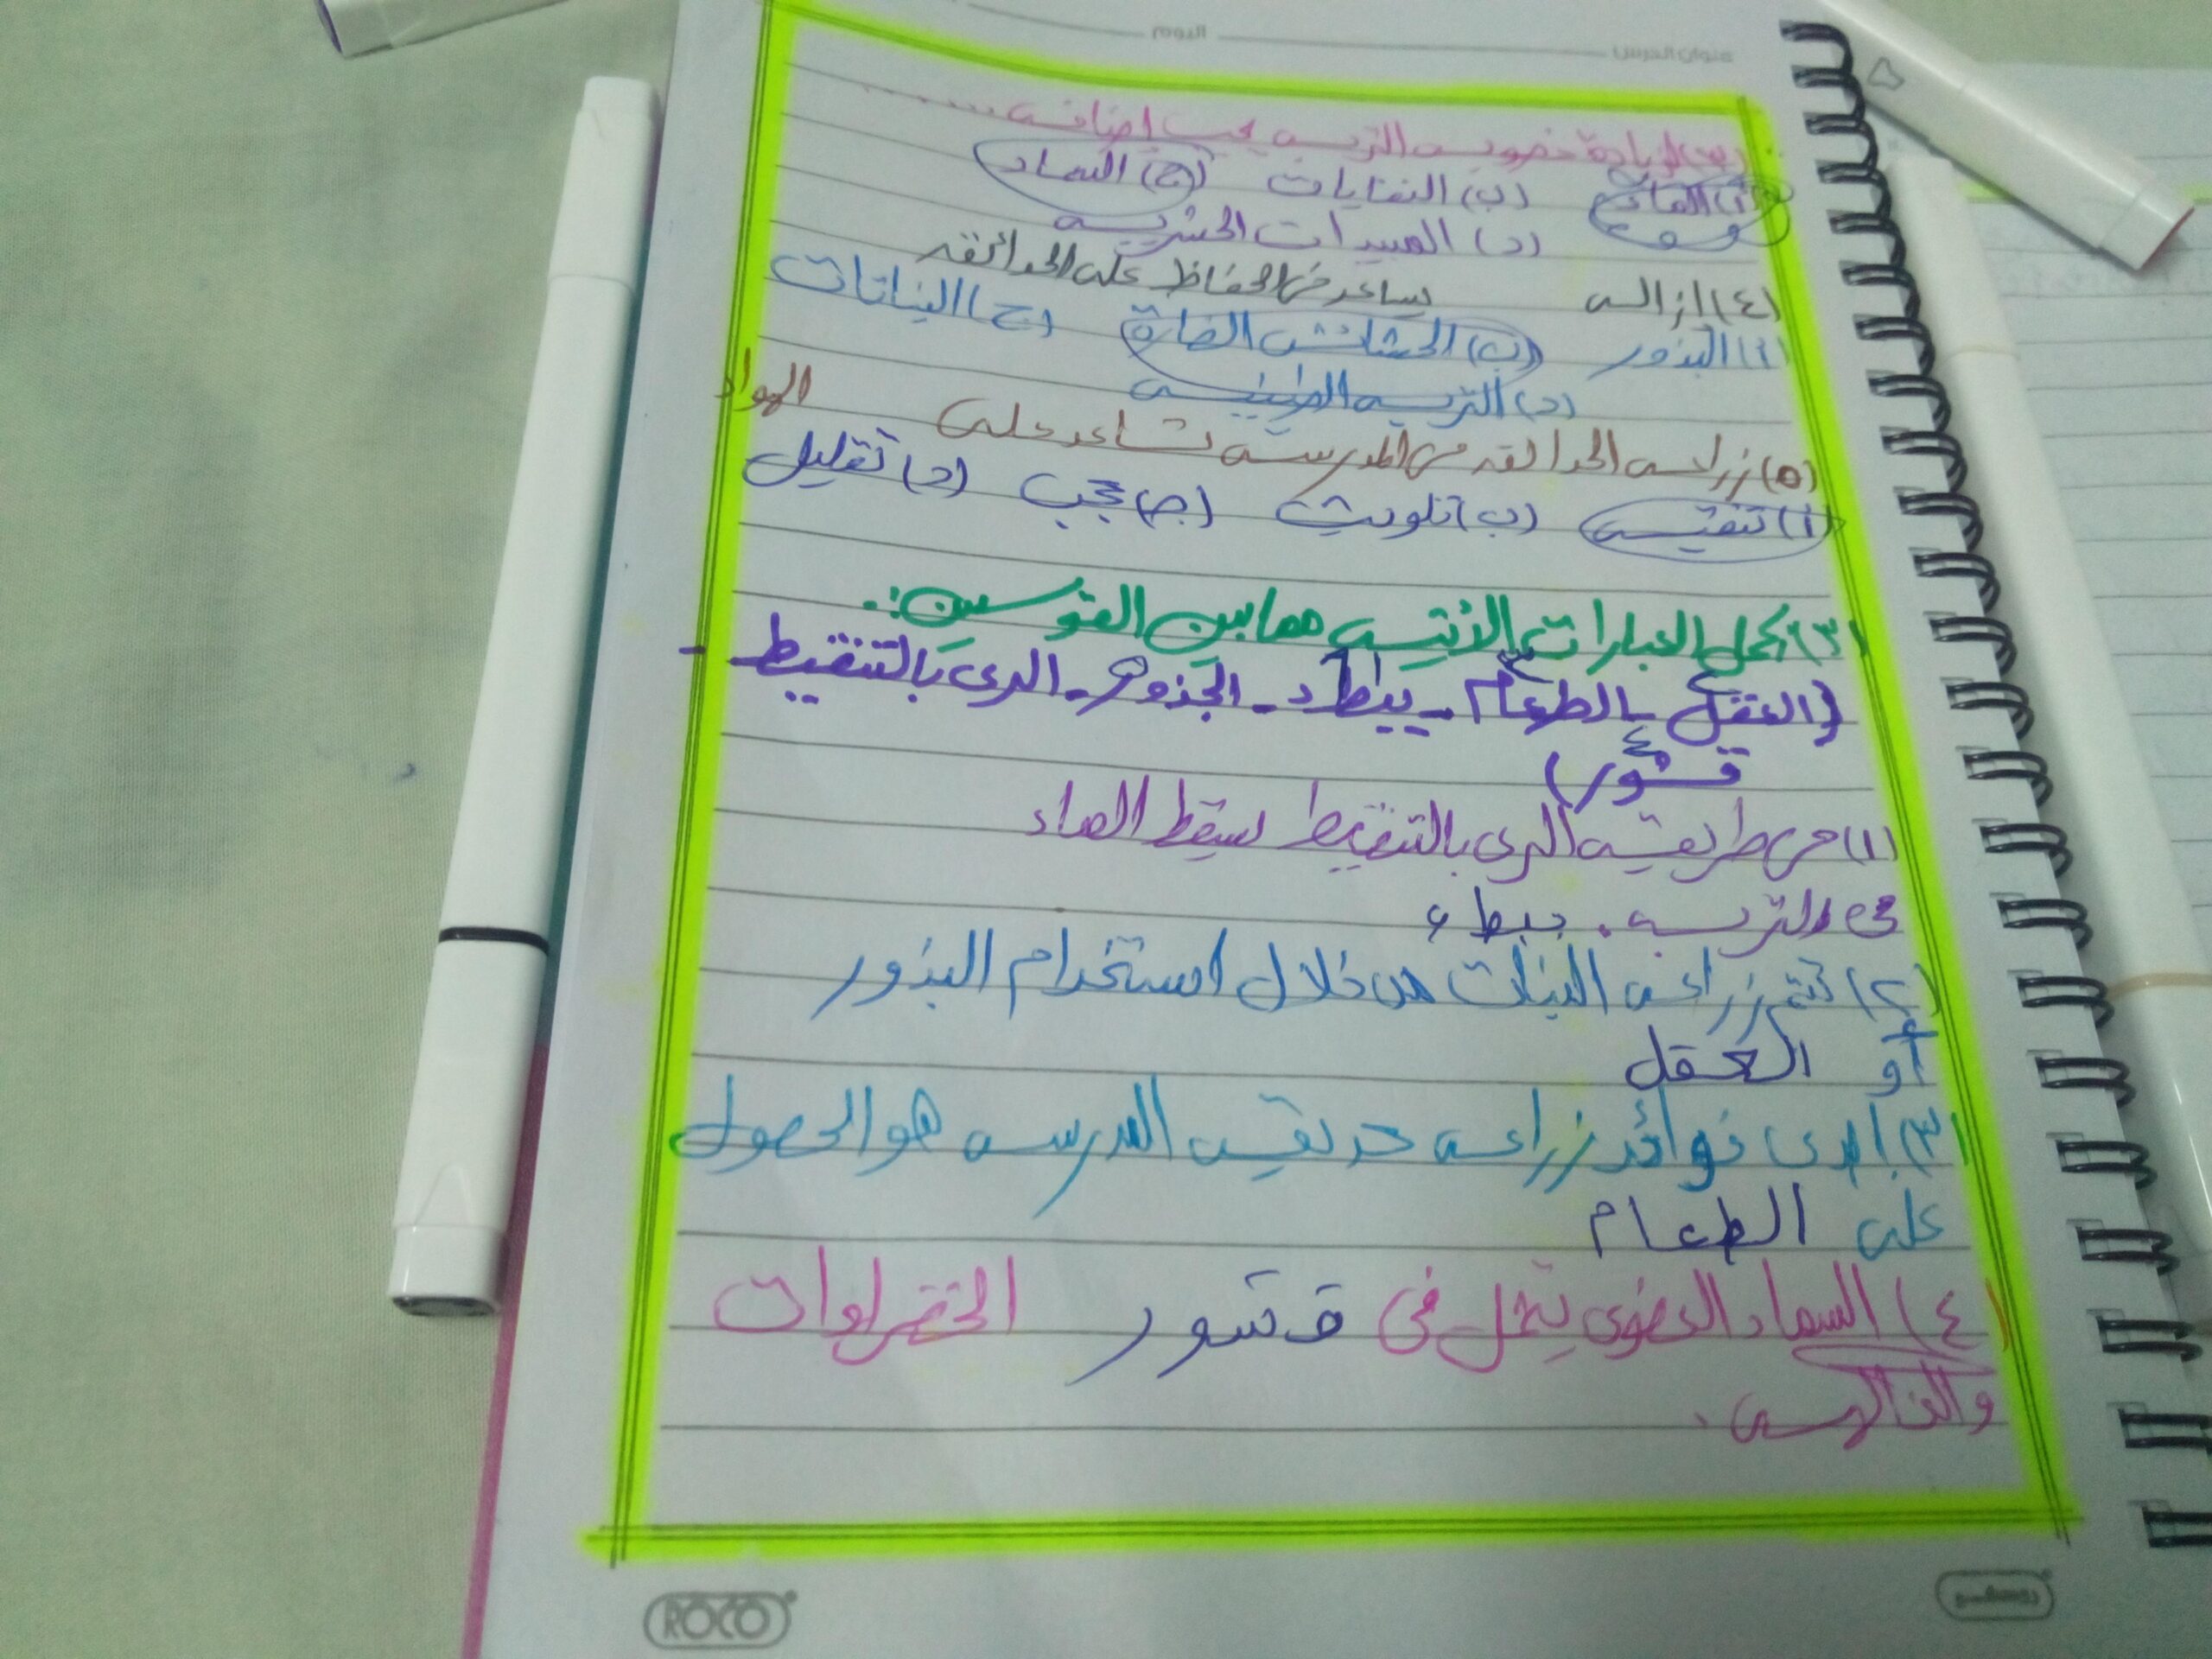 عنوان الدرس اليوم
(٣) لزيادة خصوبه التربه يجب إضافه ........
(أ) الماء (ب) النفايات (ج) السماد
(د) المبيدات الحشريه
(٤) ازاله يساعد فى الحفاظ على الحدائقه
(أ) البذور (ب) الحشائش الضارة (ج) النباتات
(د) التربه الطينيه
(٥) زراعه الحدائقه فى المدرسه تساعد على الهواء
(أ) تنقيه (ب) تلويث (ج) حجب (د) تقليل
(٣) اكمل العبارات الاتيه مما بين القوسين:.
(العقل - الطعام - ببطء - الجذور - الرى بالتنقيط -
قشور)
(١) فى طريقه الرى بالتنقيط يسقط الماء
فى التربه. ببطء
(٢) تتم زراعه النبات من خلال استخدام البذور
أو العقل
(٣) إحدى فوائد زراعه حديقه المدرسه هو الحصول
على الطعام
(٤) السماد العضوى يتمثل فى قشور الخضراوات
والفاكهه.
ROCO
روكو